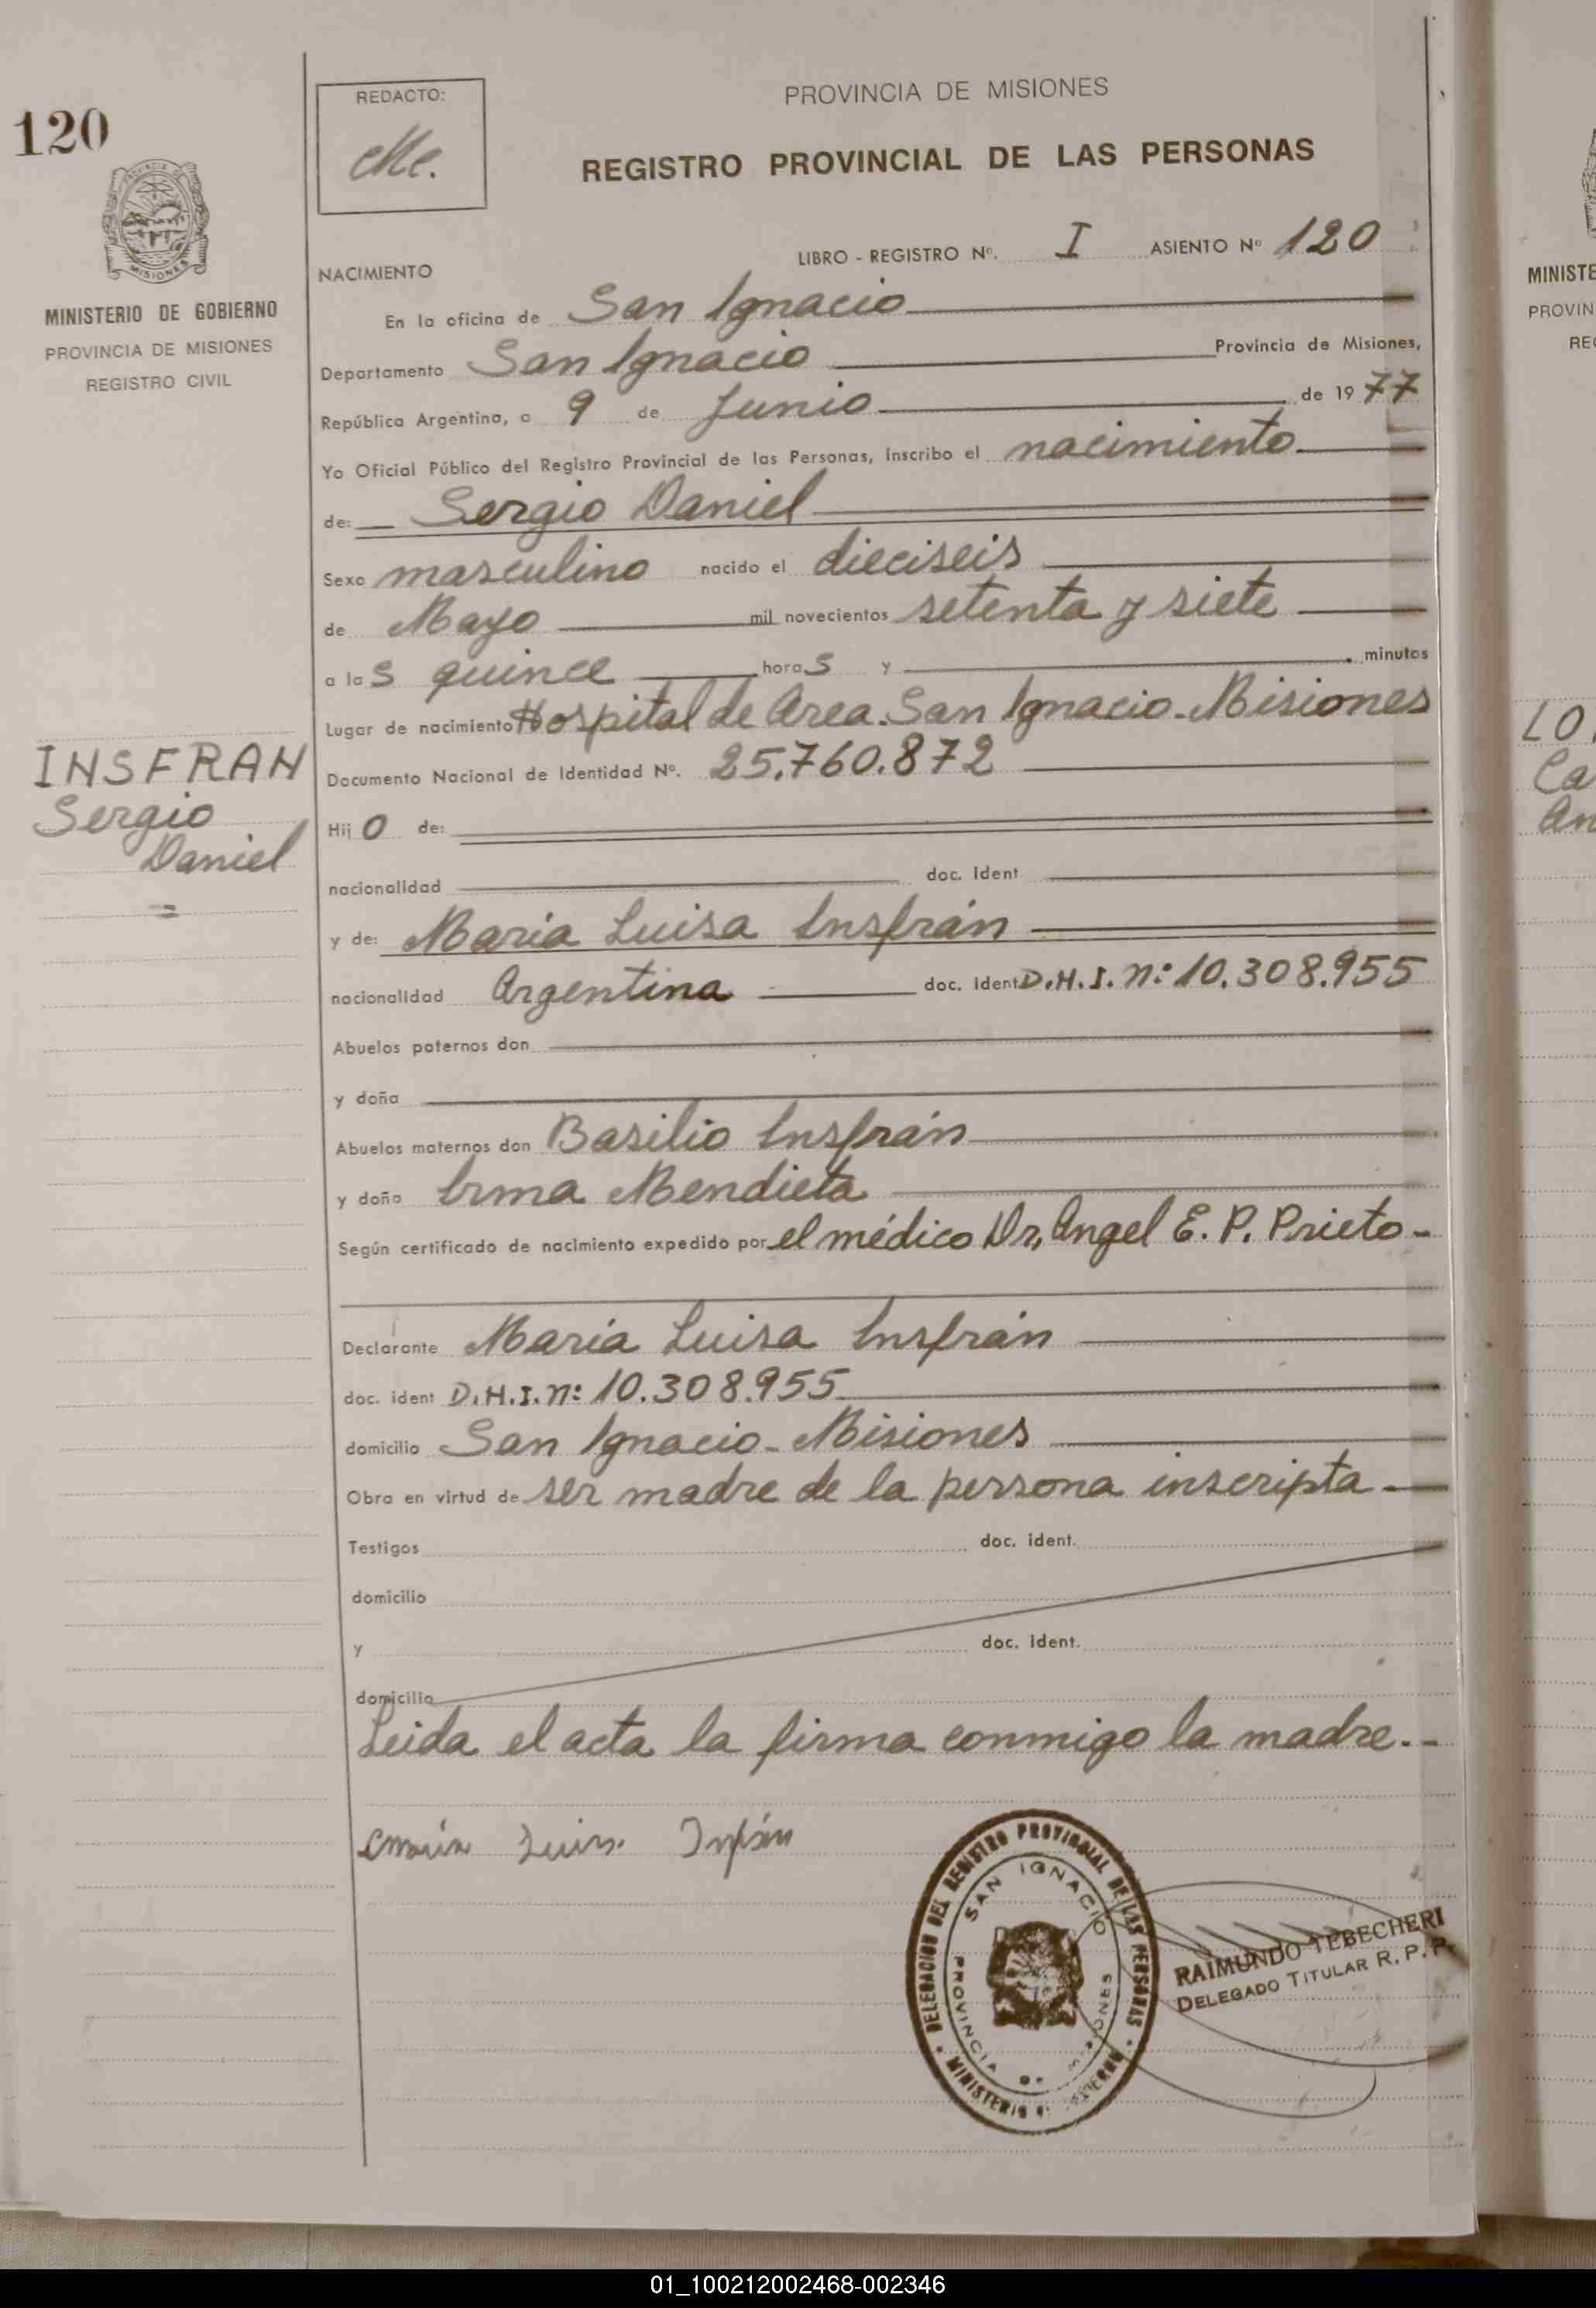 120
MISIONES
MINISTERIO DE GOBIERNO
PROVINCIA DE MISIONES
REGISTRO CIVIL
INSFRAN
Sergio
Daniel
=
REDACTO:
PROVINCIA DE MISIONES
REGISTRO PROVINCIAL DE LAS PERSONAS
LIBRO - REGISTRO Nº. I ASIENTO Nº 120
NACIMIENTO
En la oficina de San Ignacio
Departamento San Ignacio Provincia de Misiones,
República Argentina, a 9 de Junio de 1977
Yo Oficial Público del Registro Provincial de las Personas, inscribo el nacimiento
de: Sergio Daniel
Sexo masculino nacido el dieciseis
de Mayo mil novecientos setenta y siete
a las quince horas y minutos
Lugar de nacimiento Hospital de Area. San Ignacio - Misiones
Documento Nacional de Identidad Nº. 25.760.872
Hijo de:
nacionalidad doc. ident
y de: María Luisa Insfrán
nacionalidad Argentina doc. ident D.N.I. nº 10.308.955
Abuelos paternos don
y doña
Abuelos maternos don Basilio Insfrán
y doña Irma Mendieta
Según certificado de nacimiento expedido por el médico Dr. Angel E. P. Prieto -
Declarante María Luisa Insfrán
doc. ident D.N.I. nº 10.308.955
domicilio San Ignacio - Misiones
Obra en virtud de ser madre de la persona inscripta -
Testigos doc. ident.
domicilio
y doc. ident.
domicilio
Leida el acta la firma conmigo la madre. -
María Luisa Insfrán
DELEGACION DEL REGISTRO PROVINCIAL DE LAS PERSONAS
SAN IGNACIO
PROVINCIA MISIONES
MINISTERIO
RAIMUNDO TEBECHERI
DELEGADO TITULAR R. P. P.
MINISTE
PROVIN
RE
LO
Ca
An
01_100212002468-002346